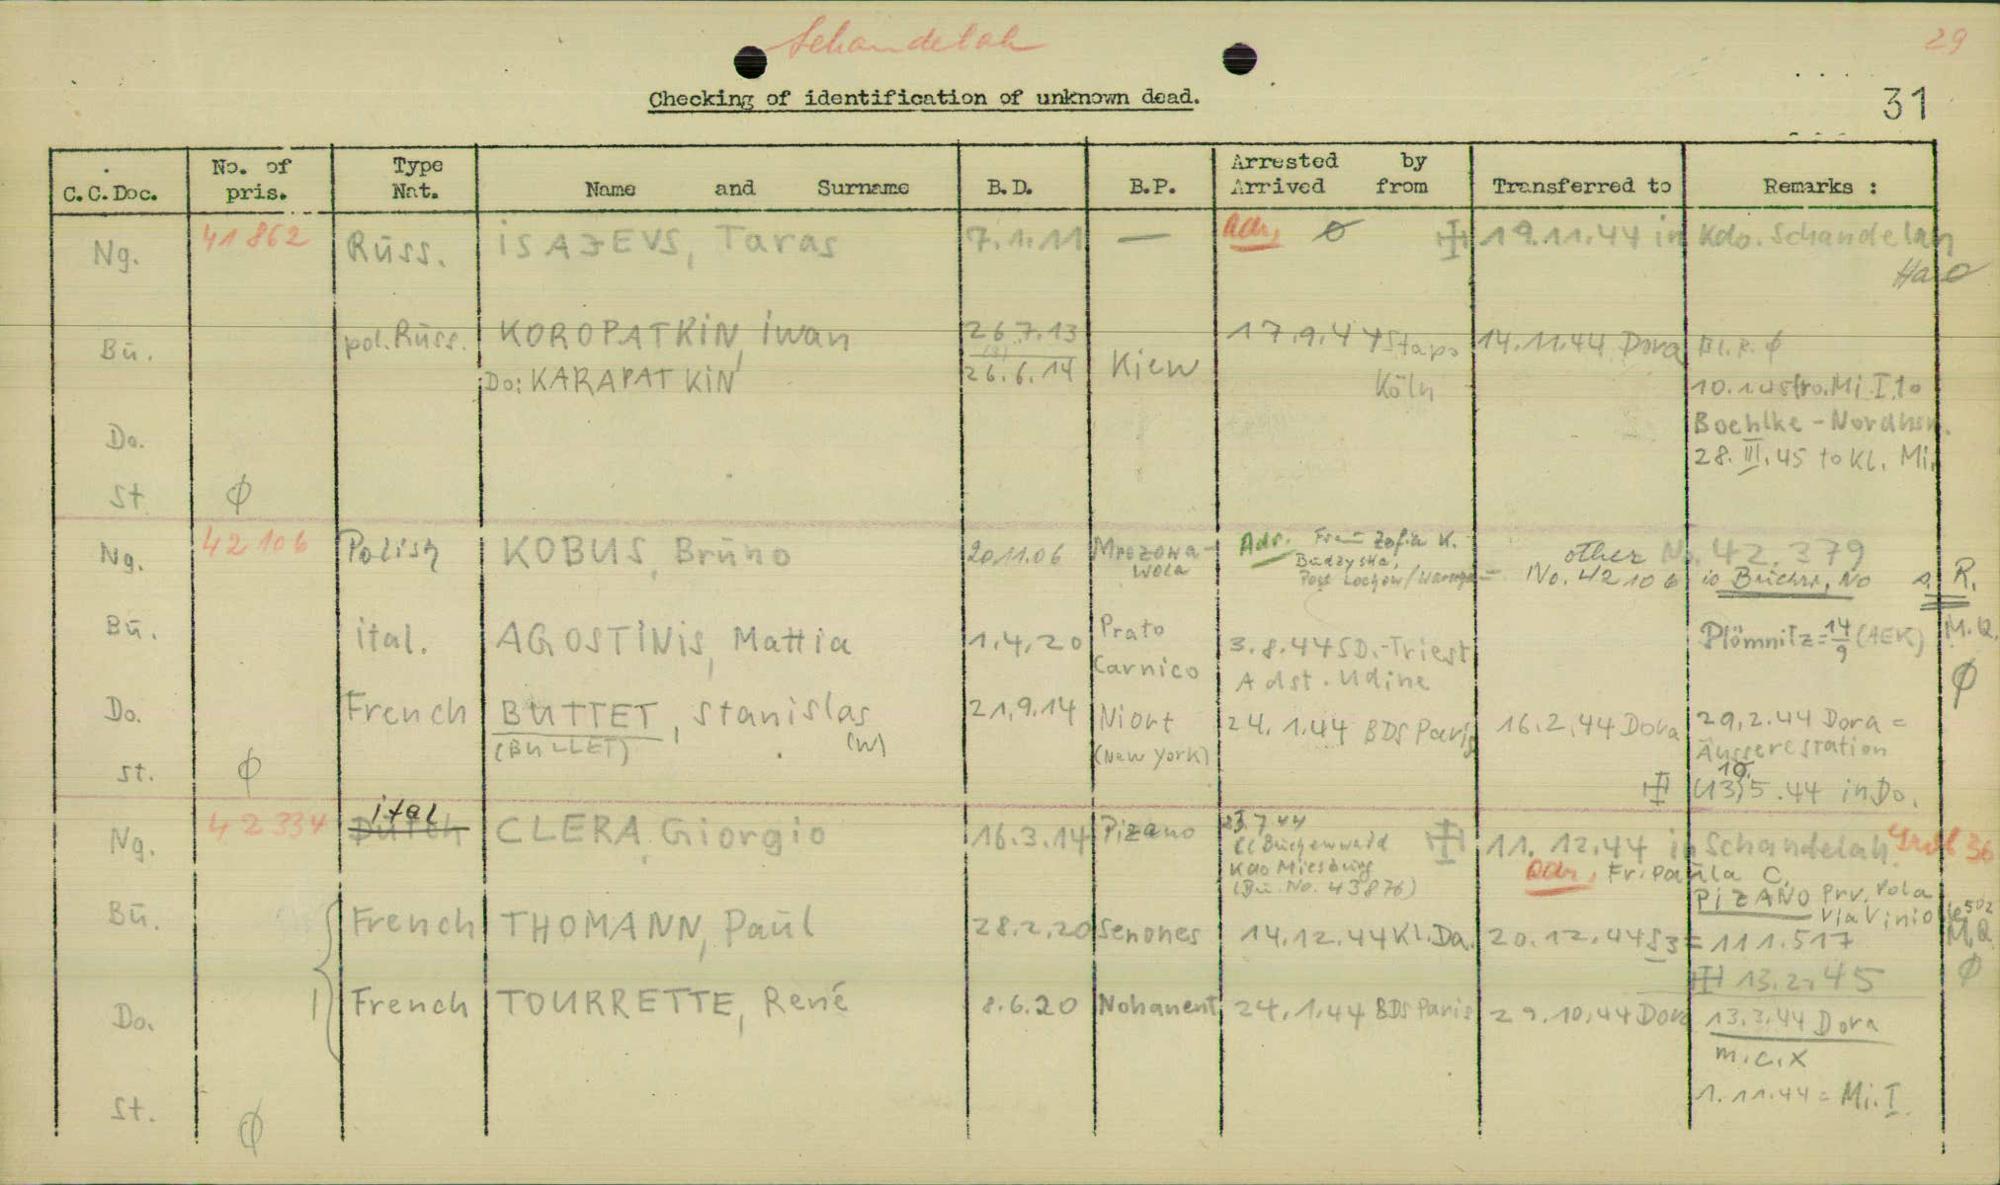 Schandelah
29
Checking of identification of unknown dead.
31
C.C.Doc. No. of pris. Type Nat. Name and Surname B.D. B.P. Arrested by Arrived from Transferred to Remarks :
Ng. 41862 Russ. ISAJEVS, Taras 7.1.11 — Adr, ø 19.11.44 in Kdo. Schandelah
Bu. pol.Russ. KOROPATKIN, Iwan 26.7.13 17.9.44 Stapo 14.11.44 Dora Bl.R. ø
Do: KARAPATKIN 26.6.14 Kiew Köln
10.1.45 fro. Mi.I to
Do. Boehlke - Nordhsn.
28.III.45 to Kl. Mi.
St ø
Ng. 42106 Polish KOBUS, Bruno 20.11.06 Mrozowa-Wola Adr. Frau Zofia K. other No. 42.379
No. 42106 is Buchw. No R.
Bu. ital. AGOSTINIS, Mattia 1.4.20 Prato Carnico 3.8.44 SD.-Triest Plömnitz = 14/9 (AEK) M.Q.
Adst. Udine ø
Do. French BUTTET, Stanislas 21.9.14 Niort 24.1.44 BDS Paris 16.2.44 Dora 29.2.44 Dora =
(BULLET) (W) (New York) Äussere station
10.
St. ø (13)5.44 in Do.
Ng. 42334 Dutch ital CLERA, Giorgio 16.3.14 Pizano 23.7.44 11.12.44 in Schandelah 36
Kl Buchenwald
Kdo Misburg Adr, Fr. Paula C.
(Bu. No. 43876) PIZANO Prv. Pola
Via Vinio
Bu. French THOMANN, Paul 28.2.20 Senones 14.12.44 Kl.Da. 20.12.44 S3 = 111.517 M.Q.
13.2.45 ø
Do. French TOURRETTE, René 8.6.20 Nohanent 24.1.44 BDS Paris 29.10.44 Dora 13.3.44 Dora
m.c.X
St. ø 1.11.44 = Mi.I.